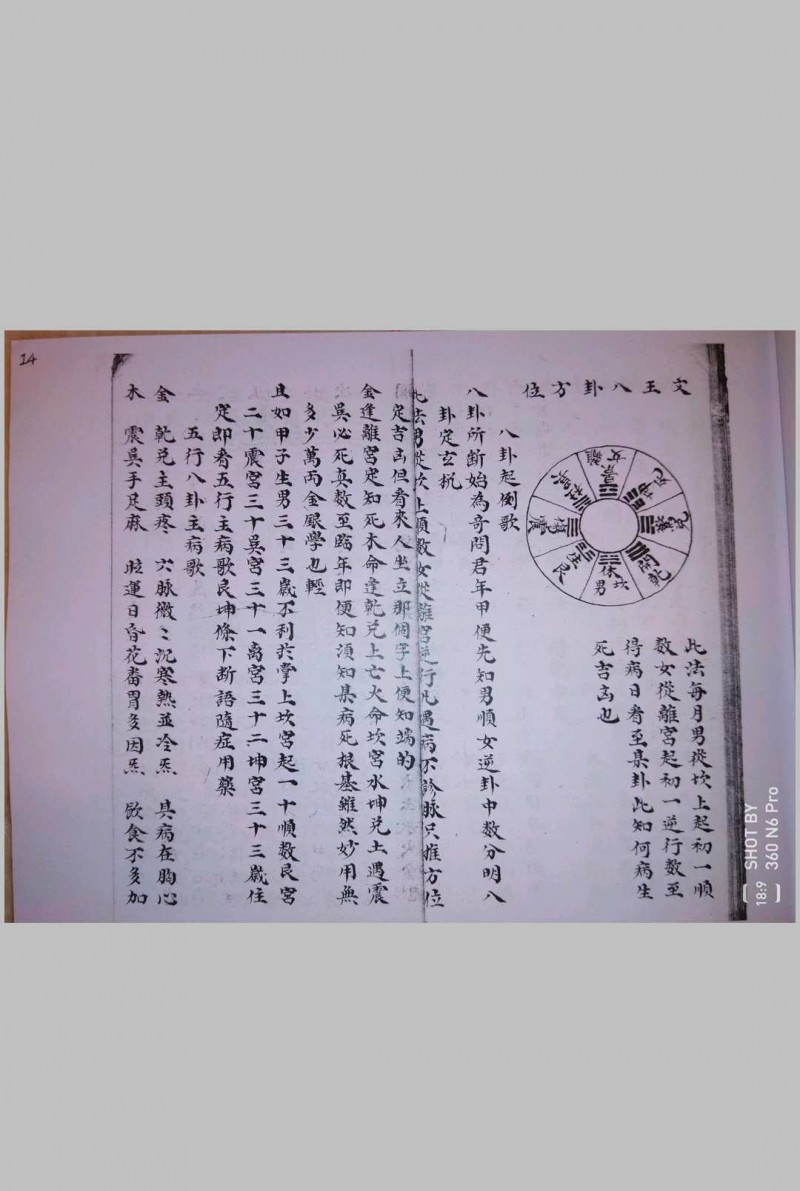 文王八卦方位
離
景
女
坤
死
兌
驚
乾
開
坎
休
男
艮
生
震
傷
巽
杜
此法每月男從坎上起初一順
数女從離宮起初一逆行数至
得病日看至某卦此知何病生
死吉凶也
八卦起例歌
八卦所断始為奇問君年甲便先知男順女逆卦中数分明八
卦定玄机
此法男從坎上順数女從離宮逆行凡遇病不診脉只推方位
定吉凶但看來人坐立那個字上便知端的
金逢離宮定知死木命逢乾兌上亡火命坎宮水坤兌土遇震
巽必死真数至臨年即便知須知某病死根基雖然妙用無
多少萬両金銀學也輕
且如甲子生男三十三歲不利於掌上坎宮起一十順数艮宮
二十震宮三十巽宮三十一离宮三十二坤宮三十三歲住
定即看五行主病歌艮坤條下断語隨症用藥
五行八卦主病歌
金 乾兌主頭疼 六脉微〻沉寒熱並冷炁 具病在胸心
木 震巽手足麻 眩運日昏花畨胃多因炁 飲食不多加
14
SHOT BY
360 N6 Pro
18:9